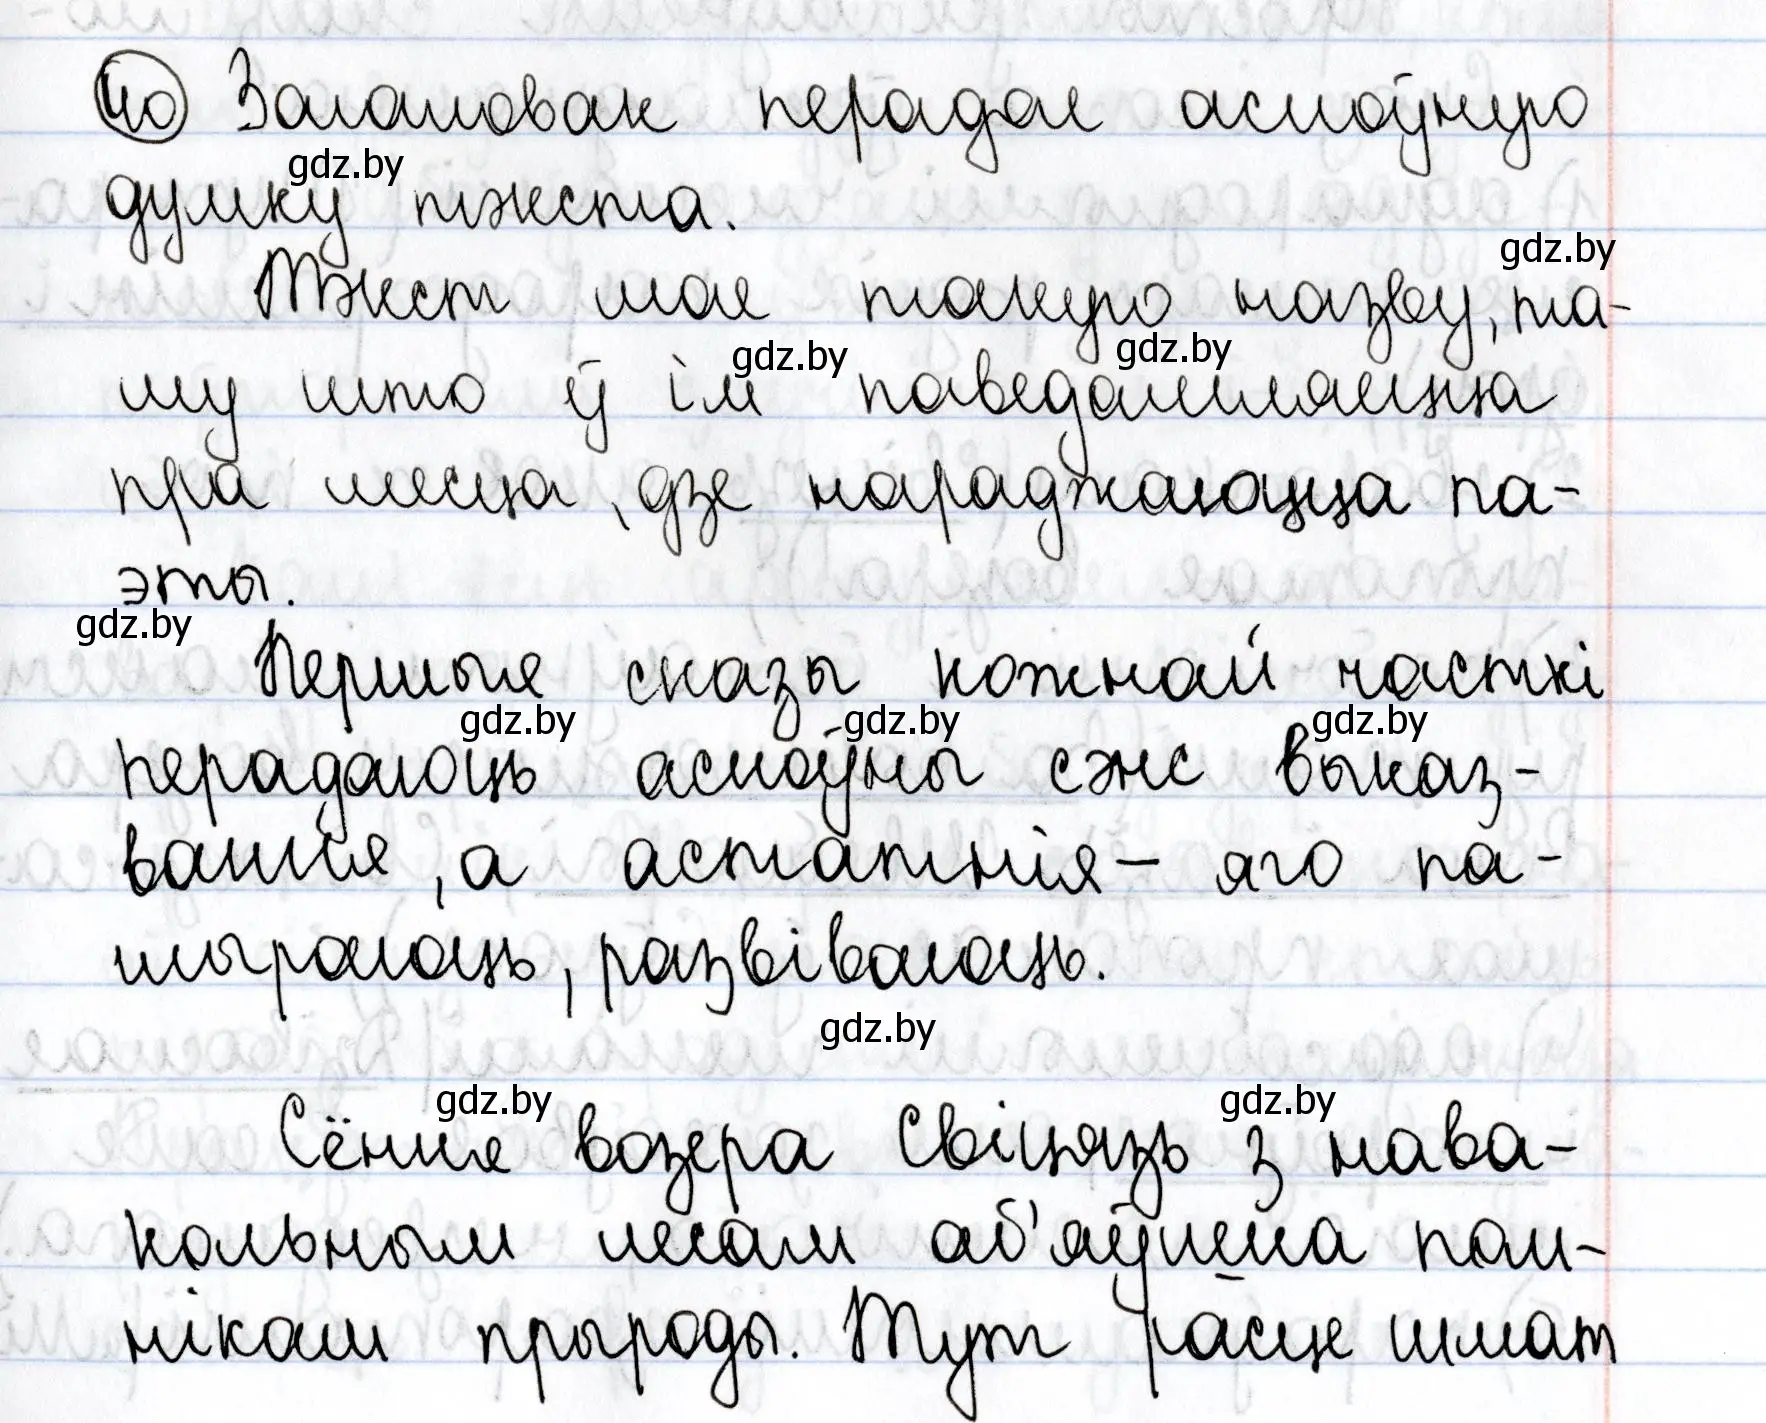 40 Загаловак перадае асноўную
gdz.by
думку тэкста.
gdz.by
Тэкст мае такую назву, та-
gdz.by gdz.by
му што ў ім паведамляецца
пра месца, дзе нараджаюцца па-
эты.
gdz.by
Першыя сказы кожнай часткі
gdz.by gdz.by gdz.by
перадаюць асноўны сэнс выказ-
вання, а астатнія – яго па-
шыраюць, развіваюць.
gdz.by
gdz.by gdz.by
Сёння возера Свіцязь з нава-
кольным лесам аб'яўлена пом-
нікам прыроды. Тут расце шмат